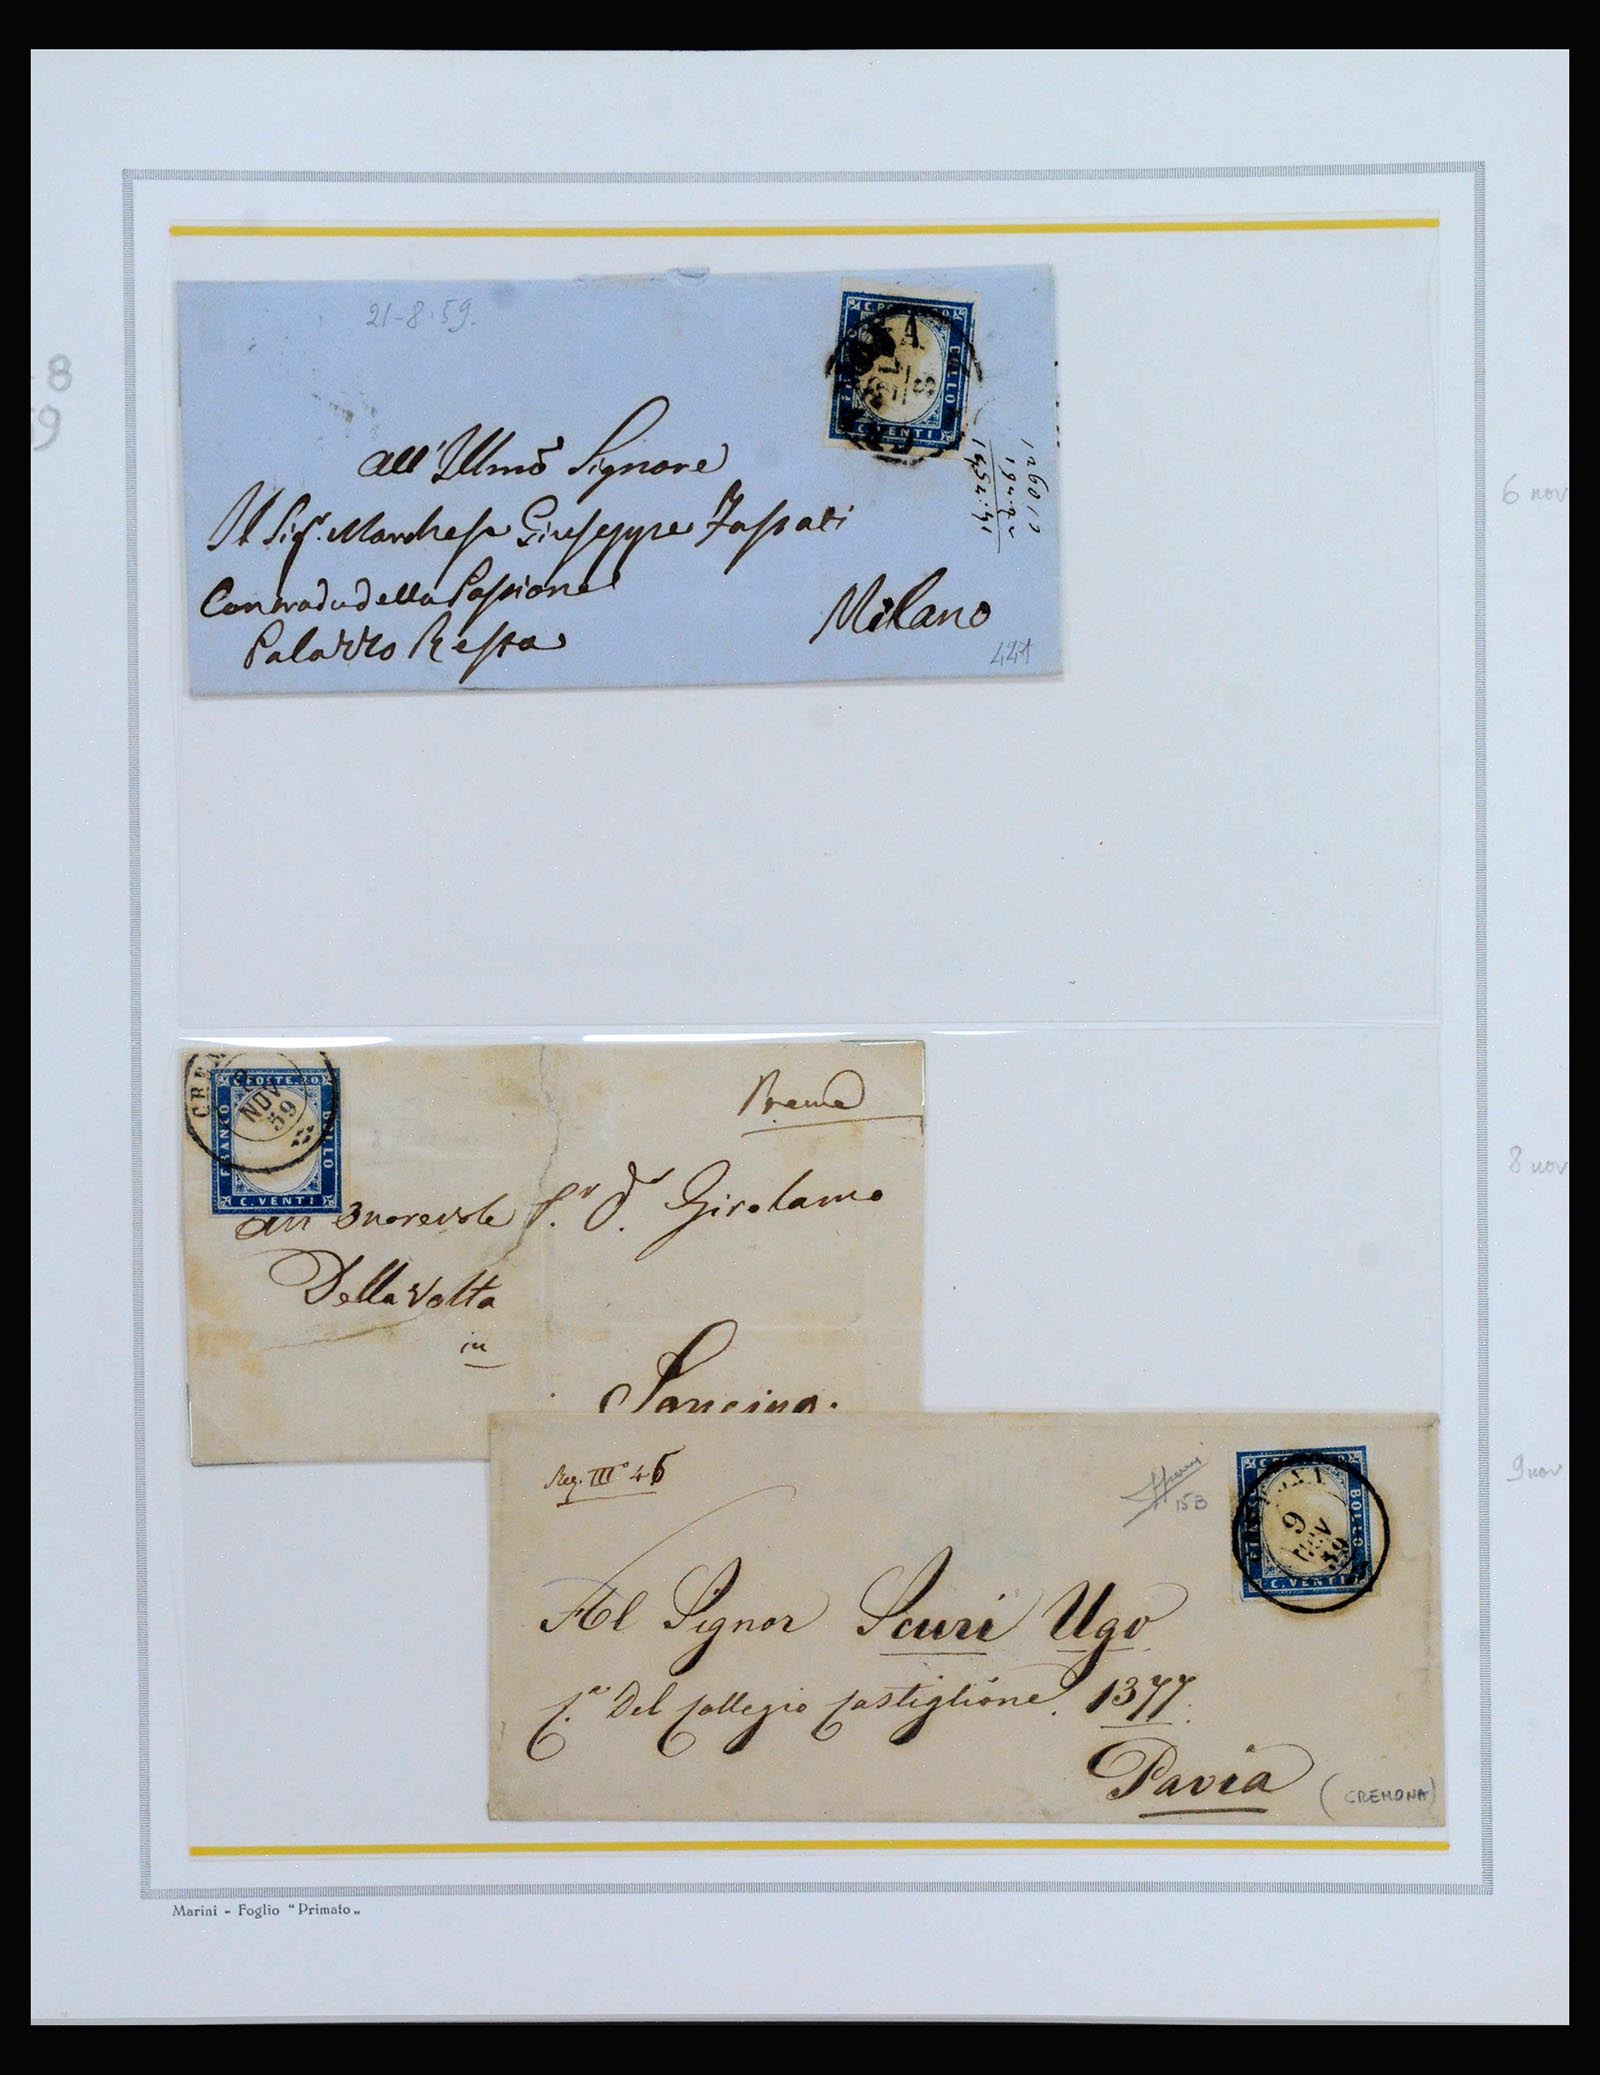 8
9
21-8.59.
C. POSTE. R.O
BOLLO
C. VENTI
CREMONA
All'Illmo Signore
Il Sigr. Marchese Giuseppe
Contrada della Passione
Palazzo Resta
Milano
6 nov
CREM
8
NOV
59
C. POSTE. R.O
FRANCO
BOLLO
C. VENTI
Preme
All' Onorevole Sr. Dr. Girolamo
Della Volta
in
Soncino.
8 nov
Reg. III° 46
15B
9
NOV
59
BOLLO
C. VENTI
Al Signor Scuri Ugo
Del Collegio Castiglione. 1377.
Pavia
(CREMONA)
9 nov
Marini - Foglio "Primato„